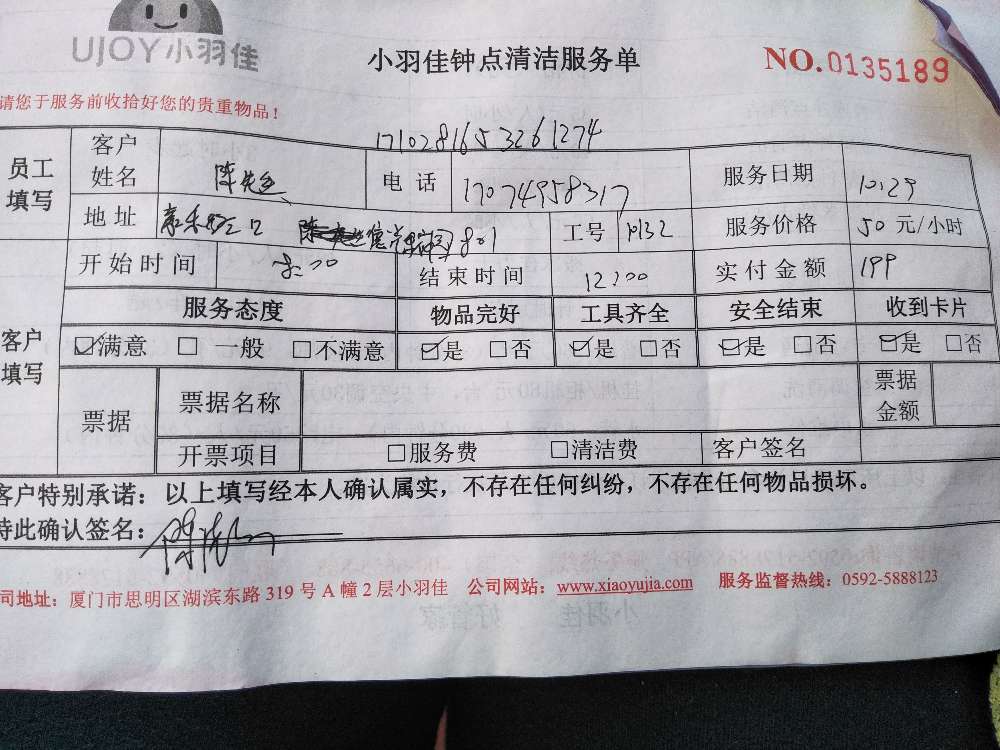 UJOY小羽佳
小羽佳钟点清洁服务单
NO.0135189
请您于服务前收拾好您的贵重物品!
1710281653261274
员工填写 客户姓名 陈先生 电话 17074958317 服务日期 10.29
地址 801 工号 服务价格 50 元/小时
开始时间 8:00 结束时间 12:00 实付金额 199
客户填写 服务态度 物品完好 工具齐全 安全结束 收到卡片
☑满意 □ 一般 □不满意 ☑是 □否 ☑是 □否 ☑是 □否 ☑是 □否
票据 票据名称 票据金额
开票项目 □服务费 □清洁费 客户签名
客户特别承诺:以上填写经本人确认属实,不存在任何纠纷,不存在任何物品损坏。
特此确认签名:
司地址:厦门市思明区湖滨东路 319 号 A 幢 2 层小羽佳 公司网站:www.xiaoyujia.com 服务监督热线:0592-5888123